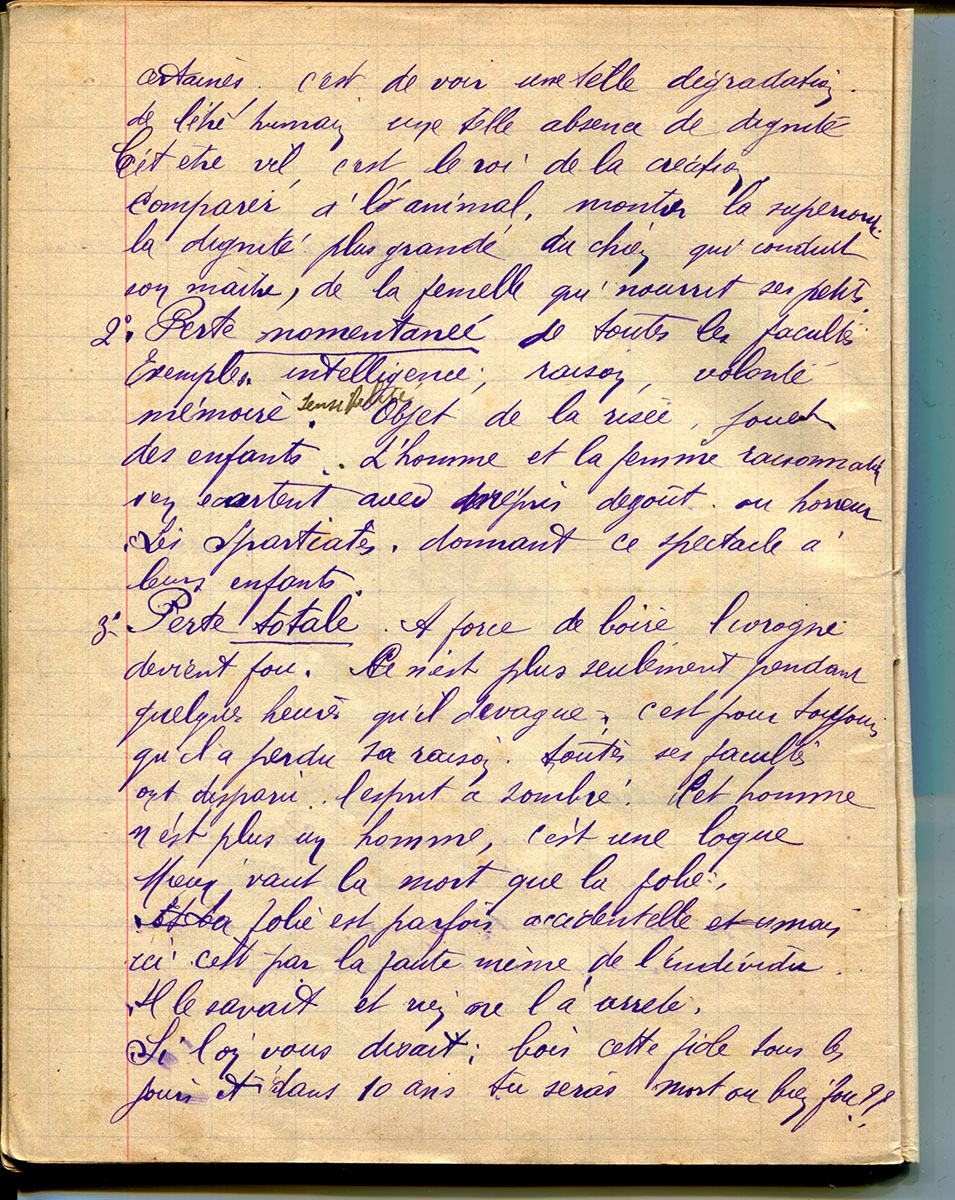 certaines. c'est de voir une telle dégradation.
de l'être humain une telle absence de dignité
Cet etre vil, c'est le roi de la création,
Comparer à l'animal, montrer la superiorité
la dignité plus grande du chien qui conduit
son maître, de la femelle qui nourrit ses petits
2°. Perte momentanée de toutes les facultés
Exemples. intelligence, raison, volonté
mémoire sensibilité. Objet de la risée, jouet
des enfants. L'homme et la femme raisonnables
s'en ecartent avec mépris degoût. ou horreur
Les Spartiates. donnant ce spectacle à
leurs enfants.
3° Perte totale. A force de boire l'ivrogne
devient fou. Ce n'est plus seulement pendant
quelques heures qu'il divague, c'est pour toujours
qu'il a perdu sa raison. toutes ses facultés
ont disparu.. l'esprit a sombré. Cet homme
n'est plus un homme, c'est une loque
Mieux vaut la mort que la folie.
Et La folie est parfois accidentelle et mais
ici c'est par la faute même de l'individu.
Il le savait et rien ne l'a arreté.
Si l'on vous disait; bois cette fiole tous les
jours et dans 10 ans tu seras mort ou bien fou??